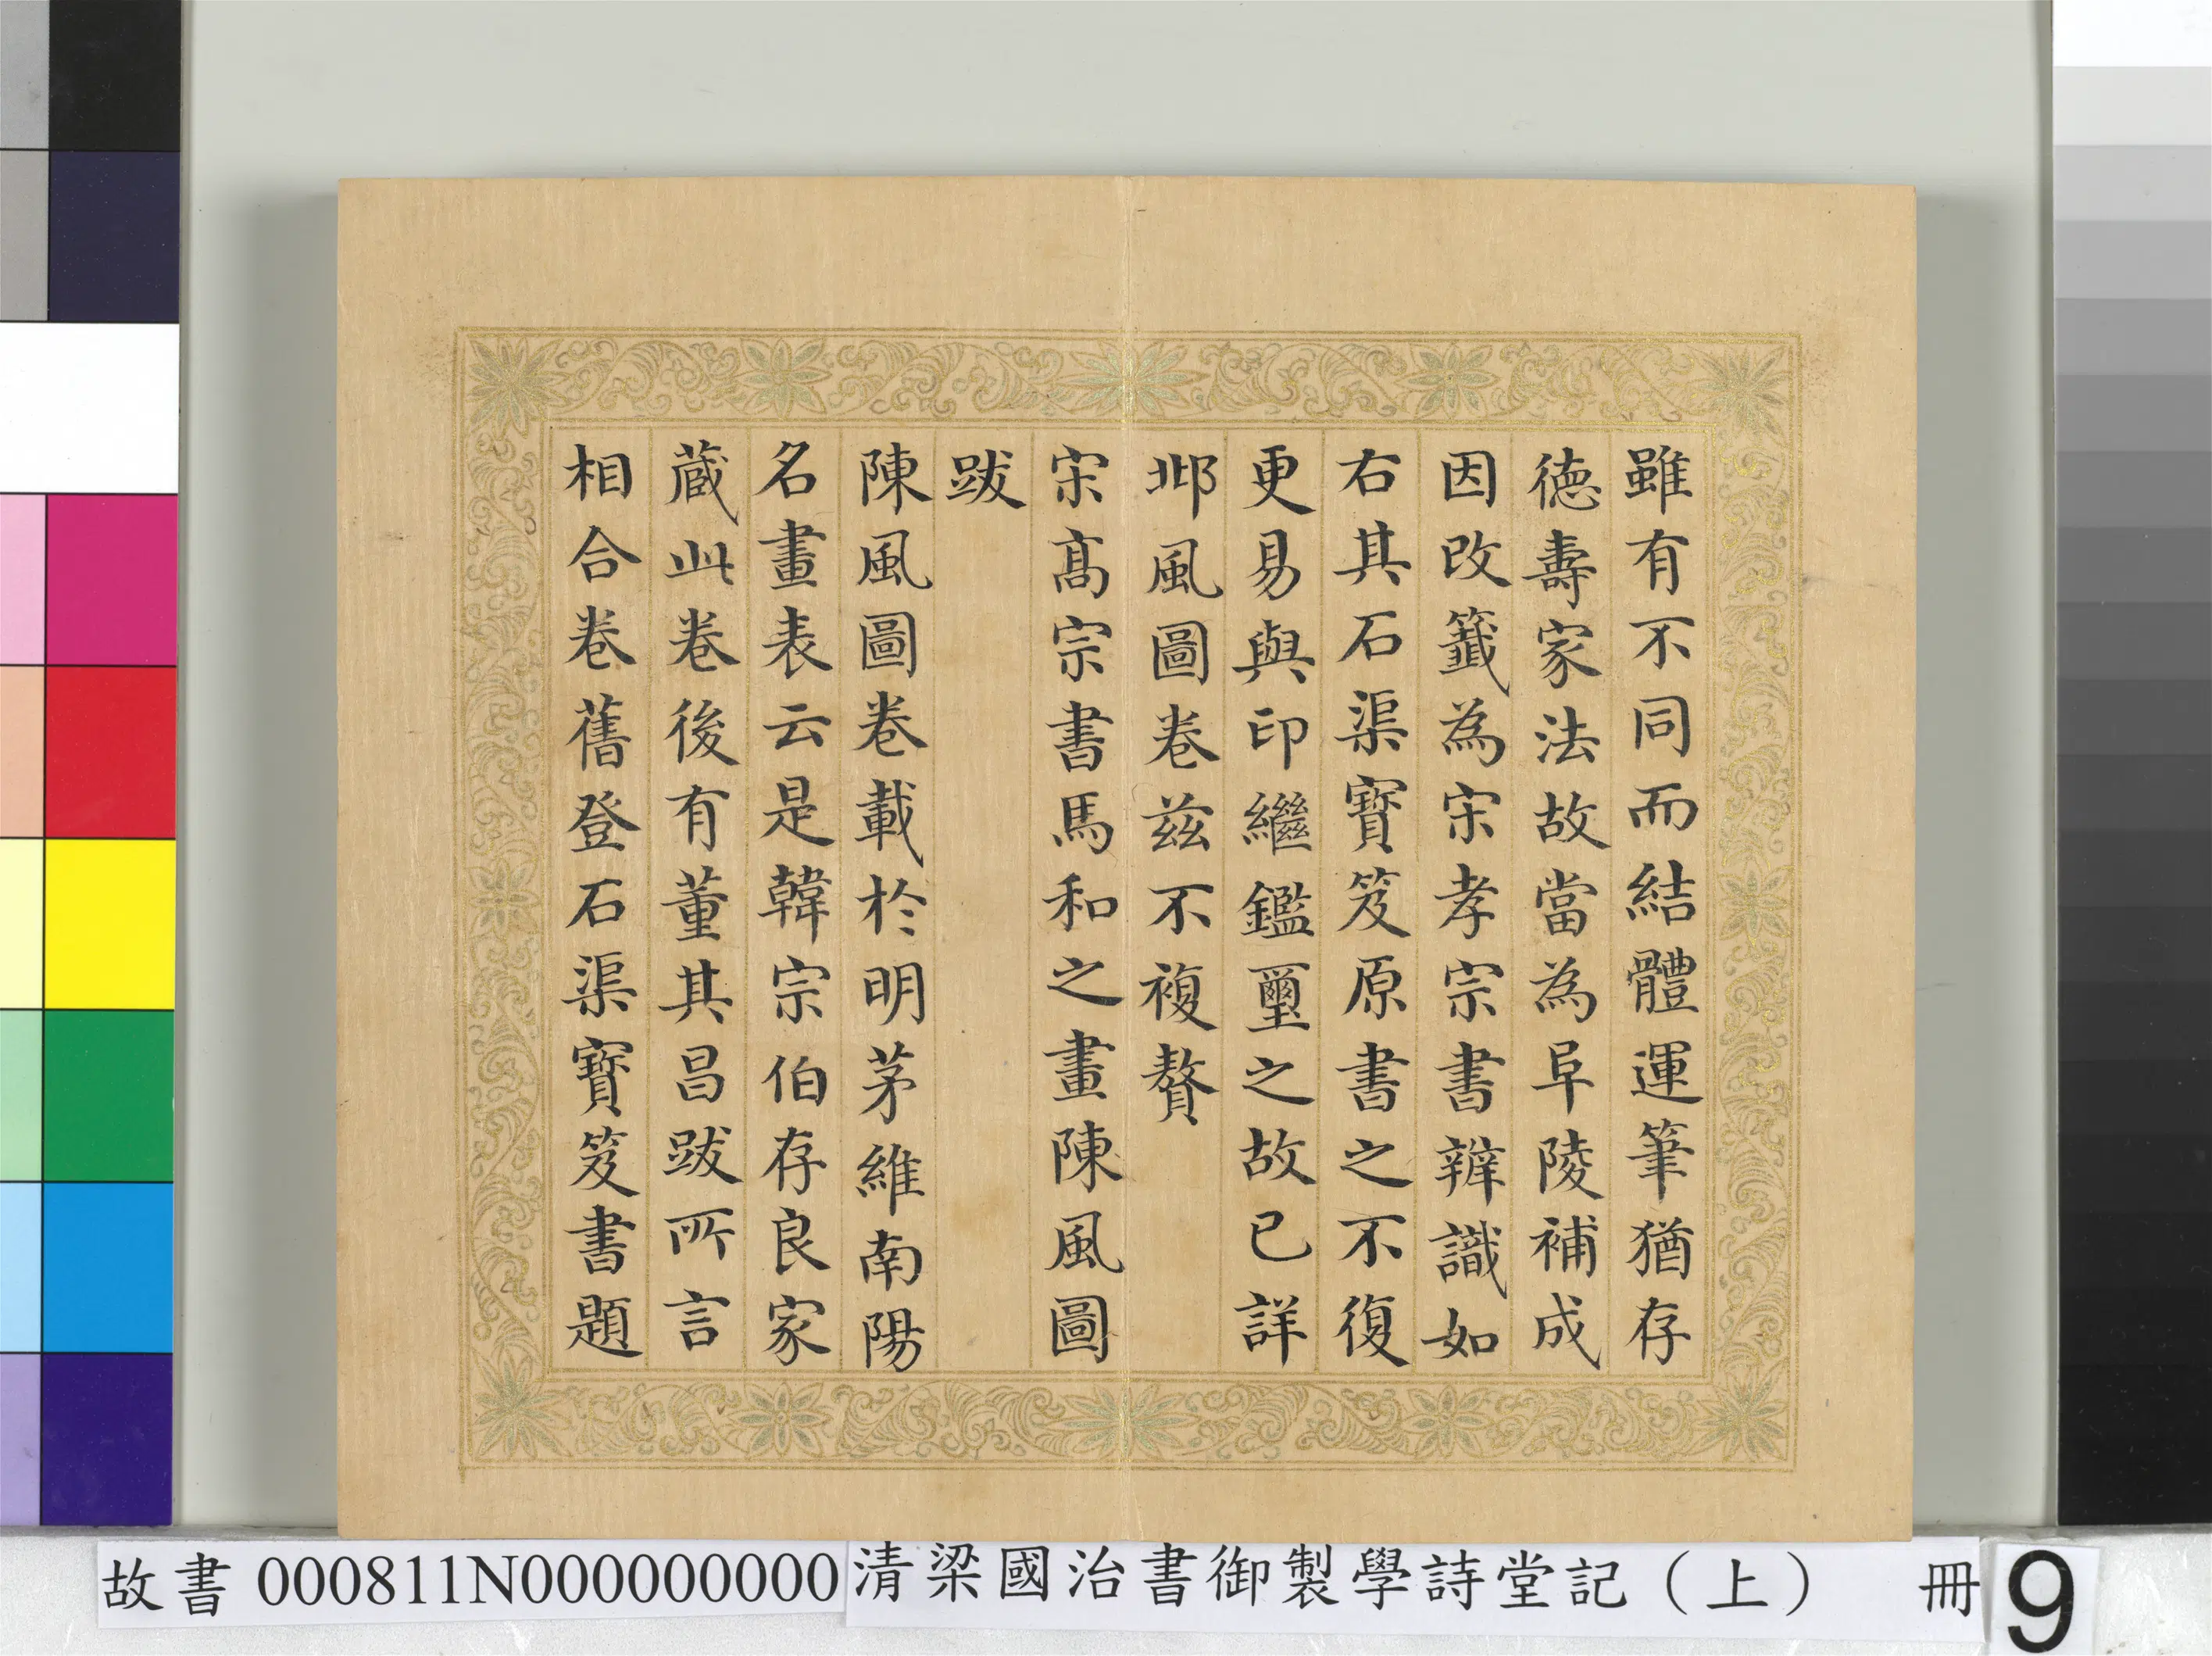 雖有不同而結體運筆猶存
德壽家法故當為阜陵補成
因改籤為宋孝宗書辨識如
右其石渠寶笈原書之不復
更易與印繼鑑璽之故已詳
邶風圖卷茲不複贅
宋髙宗書馬和之畫陳風圖
跋
陳風圖卷載於明茅維南陽
名畫表云是韓宗伯存良家
蔵此卷後有董其昌跋所言
相合卷舊登石渠寶笈書題
故書 000811N000000000 清梁國治書御製學詩堂記（上） 冊 9